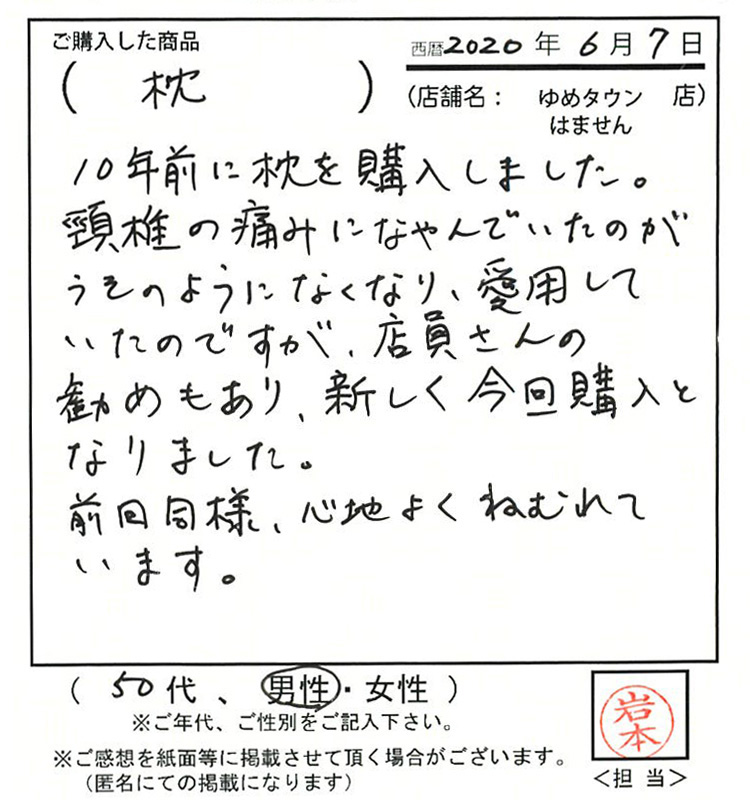 ご購入した商品
西暦2020年6月7日
(枕)
(店舗名:ゆめタウン 店)
はません
10年前に枕を購入しました。
頸椎の痛みになやんでいたのが
うそのようになくなり、愛用して
いたのですが、店員さんの
勧めもあり、新しく今回購入と
なりました。
前回同様、心地よくねむれて
います。
(50代、男性・女性)
※ご年代、ご性別をご記入下さい。
※ご感想を紙面等に掲載させて頂く場合がございます。
(匿名にての掲載になります)
岩本
<担当>